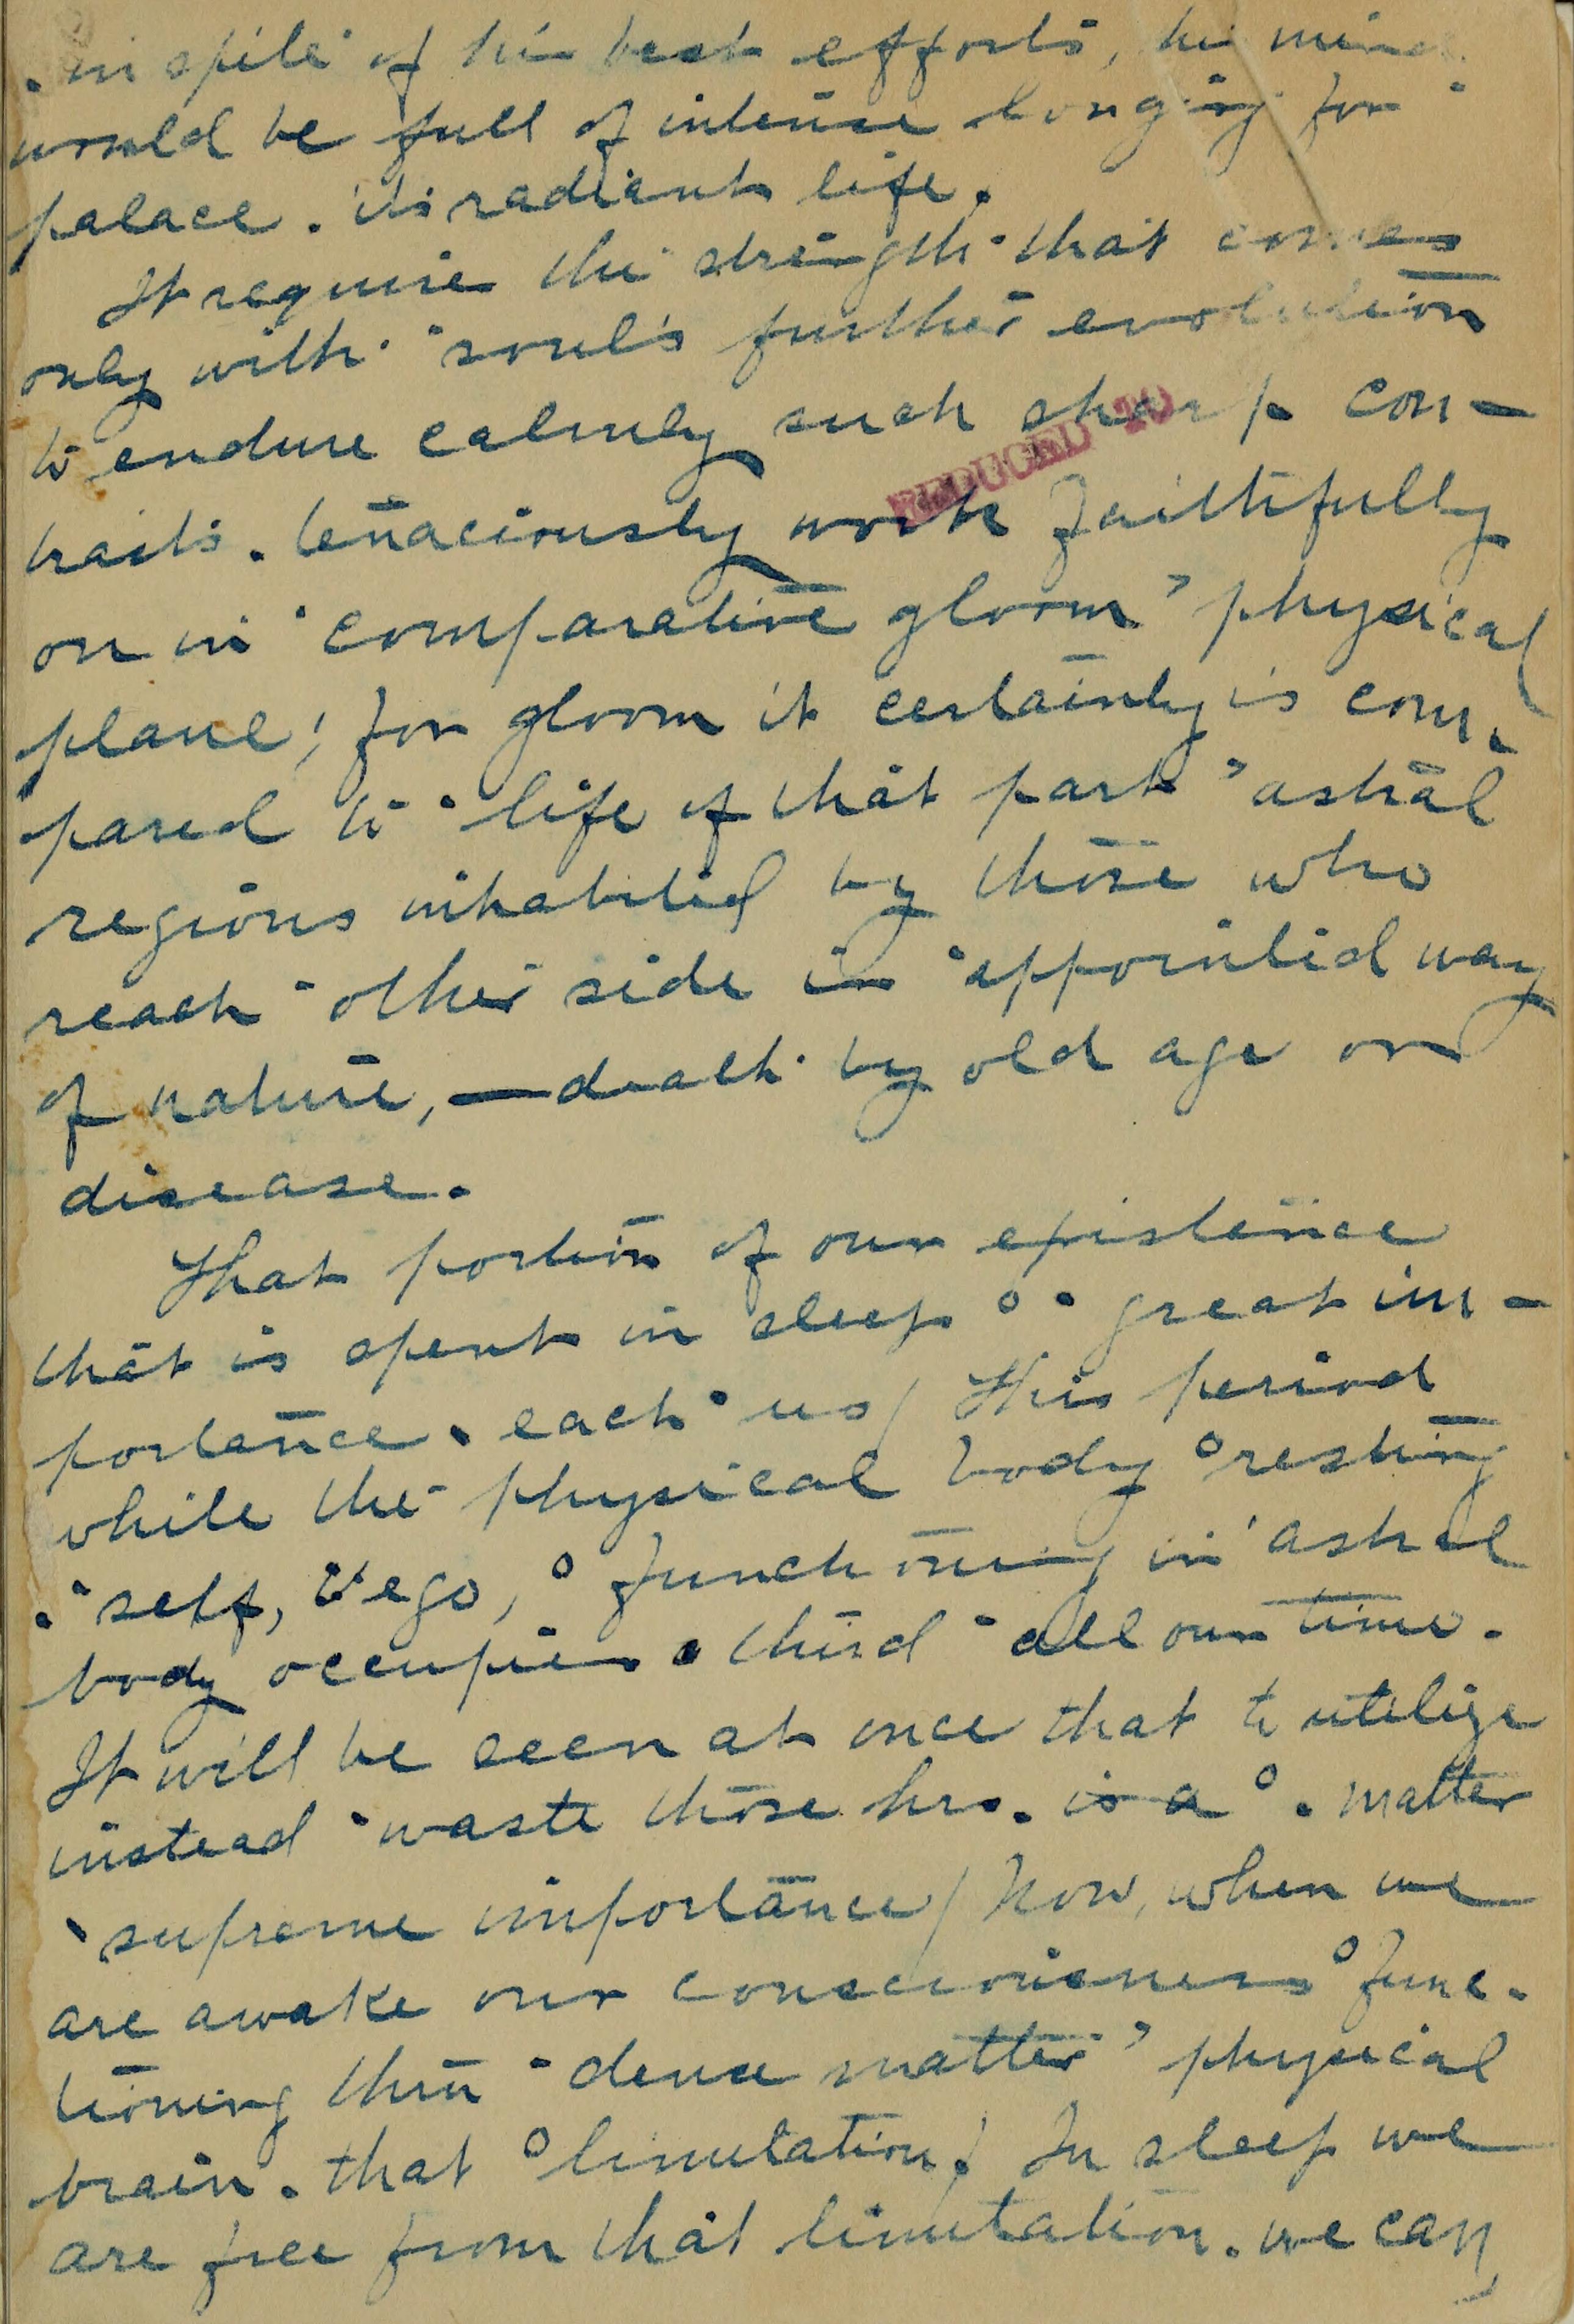 . in spite of his best efforts, his mind
would be full of intense longing for ·
palace . its radiant life.
It require the strength that comes
only with · soul's further evolution
to endure calmly such sharp con-
trasts . tenaciously work faithfully
on in · comparative gloom ' physical
plane; for gloom it certainly is com-
pared to · life of that part ' astral
regions inhabited by those who
reach · other side in · appointed way
of nature, — death by old age or
disease.
That portion of our existence
that is spent in sleep o · great im-
portance . each · us / This period
while the physical body o resting
. · self, · ego, o functioning in · astral
body occupies . third · all our time.
It will be seen at once that to utilize
instead · waste those hrs. is a o . matter
· supreme importance / Now, when we
are awake our consciousness o func-
tioning thru · dense matter ' physical
brain . that o limitation / In sleep we
are free from that limitation . we can
REDUCED 20